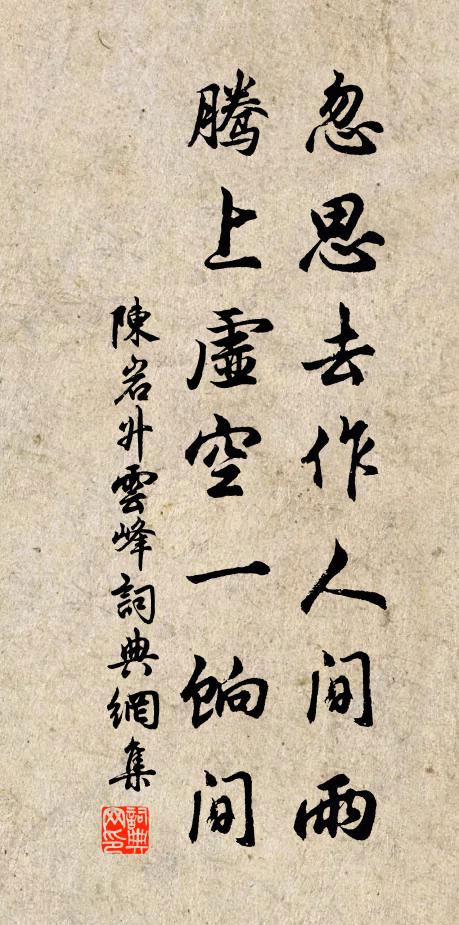 忽思去作人间雨
腾上虚空一饷间
陳岩升雲峰詞典網集
詞典网印